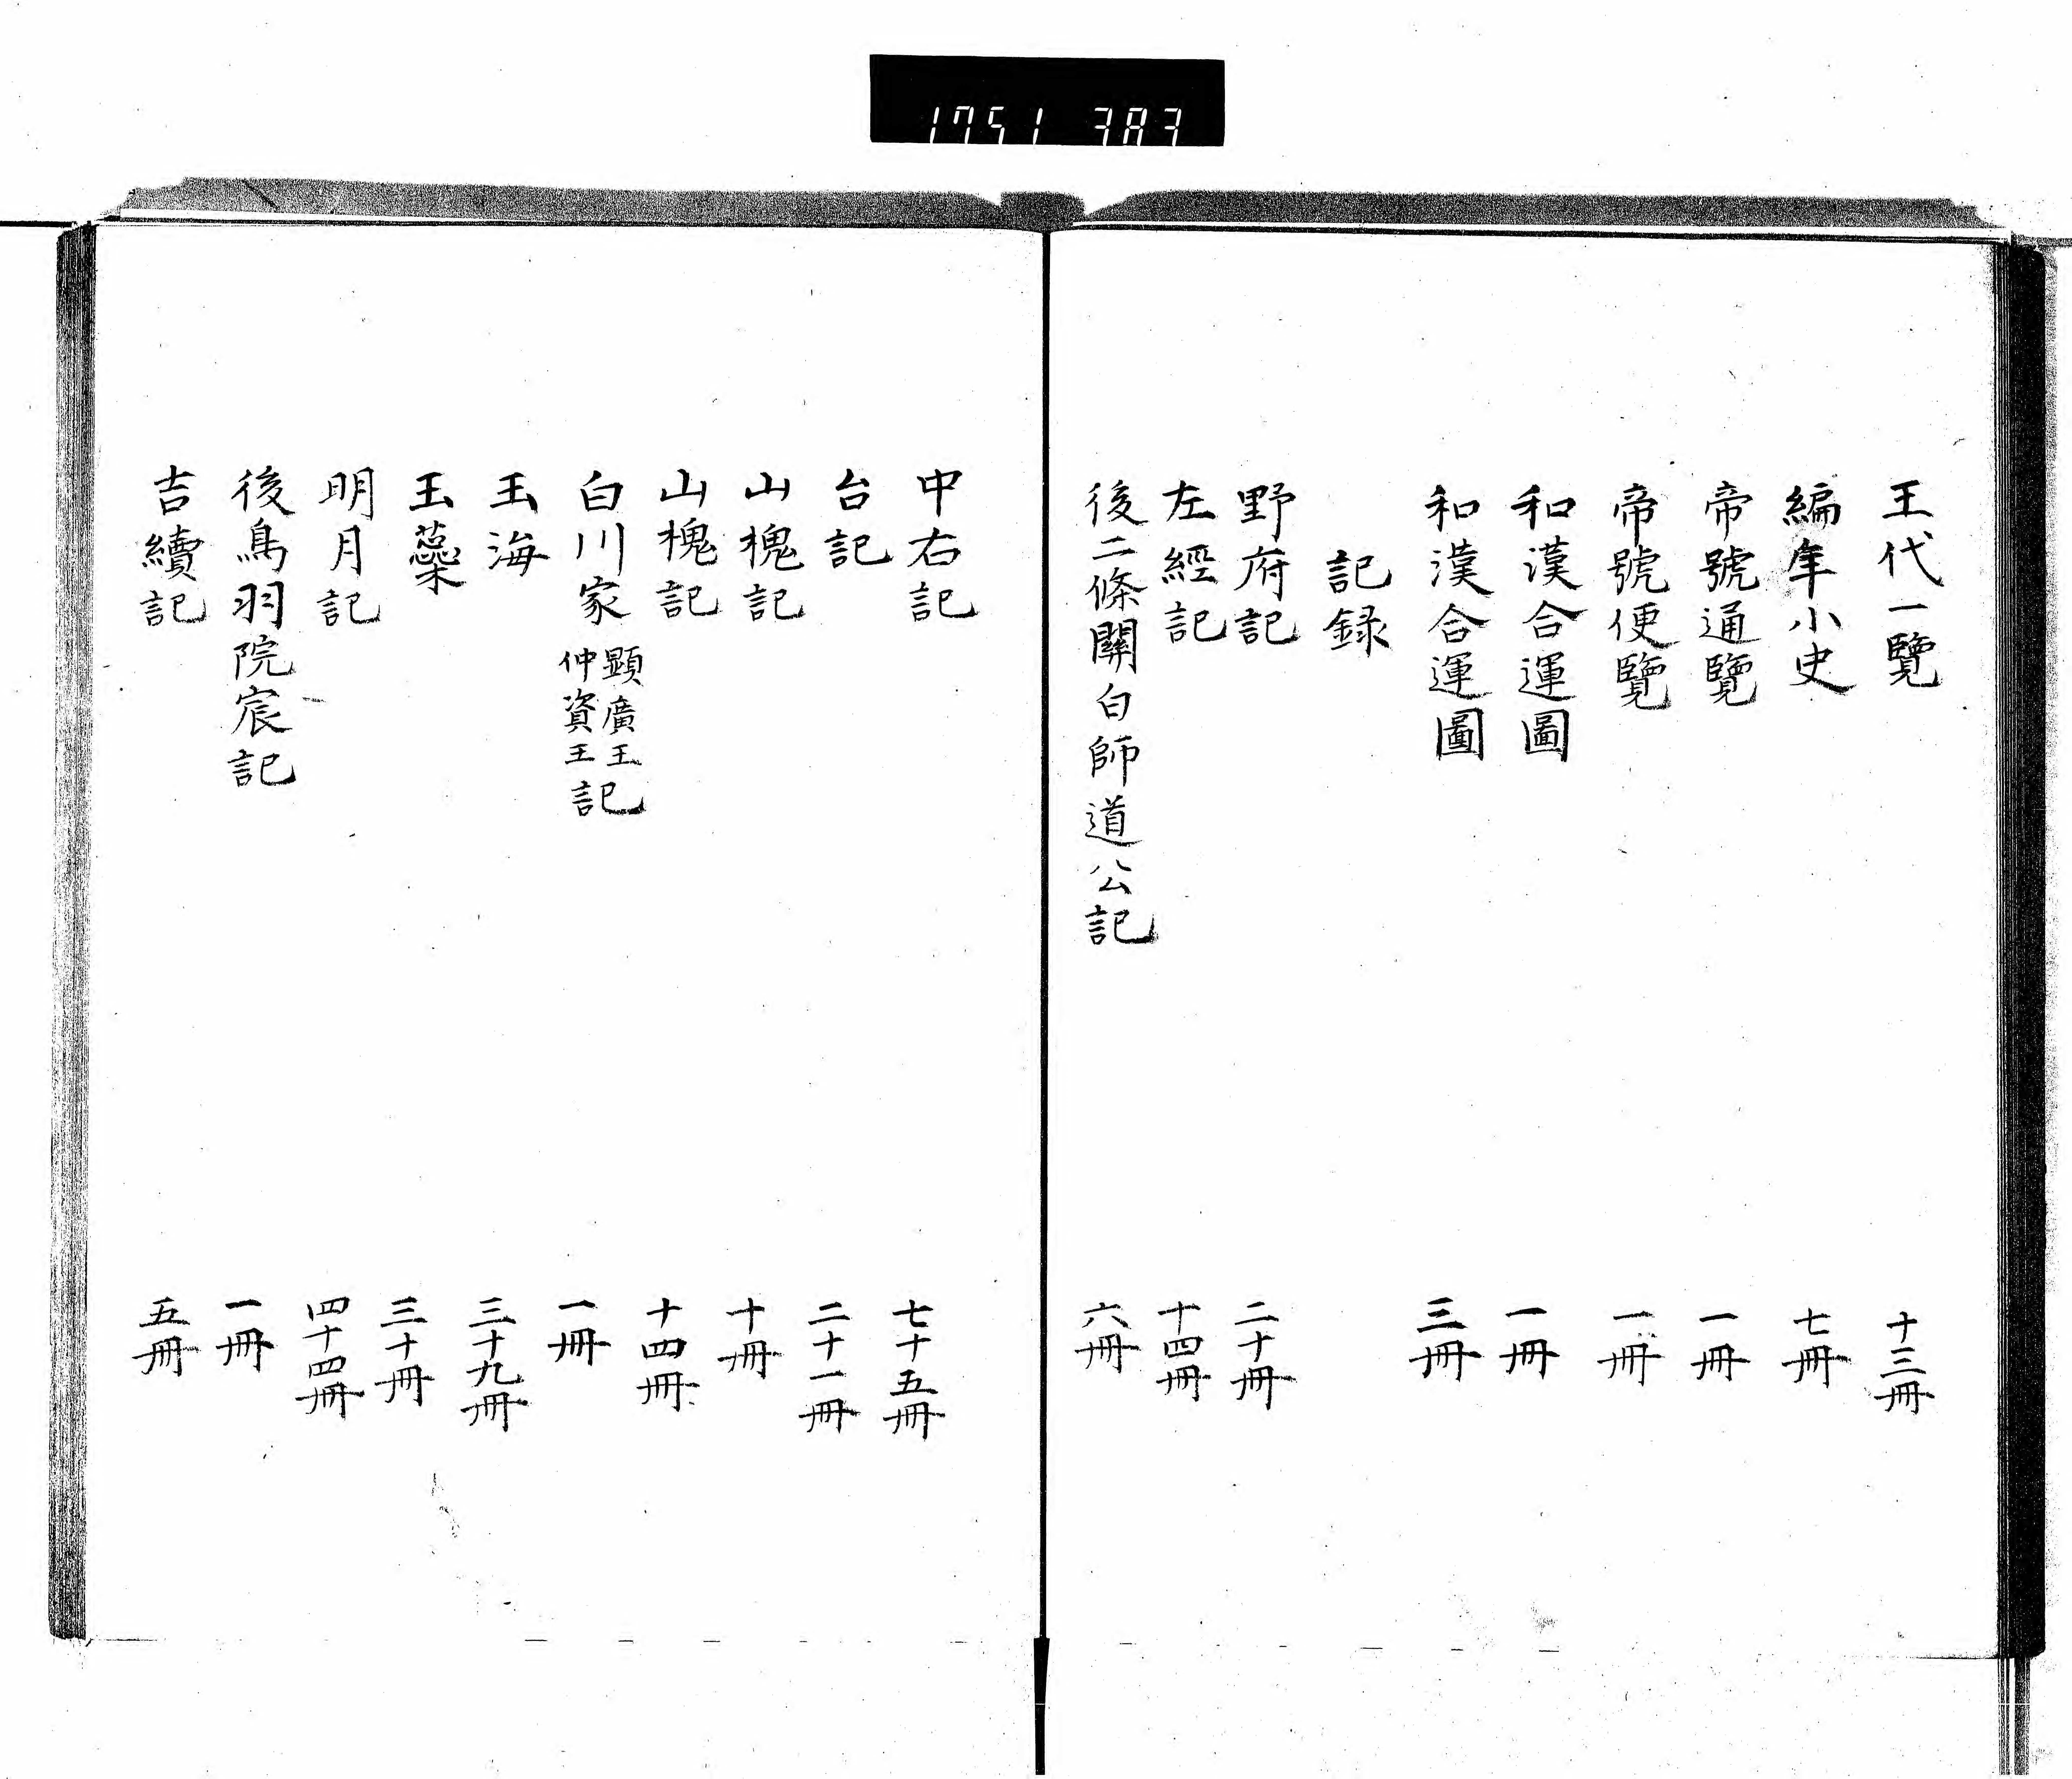 1751 383
王代一覽 十三冊
編年小史 七冊
帝號通覽 一冊
帝號便覽 一冊
和漢合運圖 一冊
和漢合運圖 三冊
記録
野府記 二十冊
左經記 十四冊
後二條關白師道公記 六冊
中右記 七十五冊
台記 二十一冊
山槐記 十冊
山槐記 十四冊
白川家顯廣王仲資王記 一冊
玉海 三十九冊
玉蘂 三十冊
明月記 四十四冊
後鳥羽院宸記 一冊
吉續記 五冊